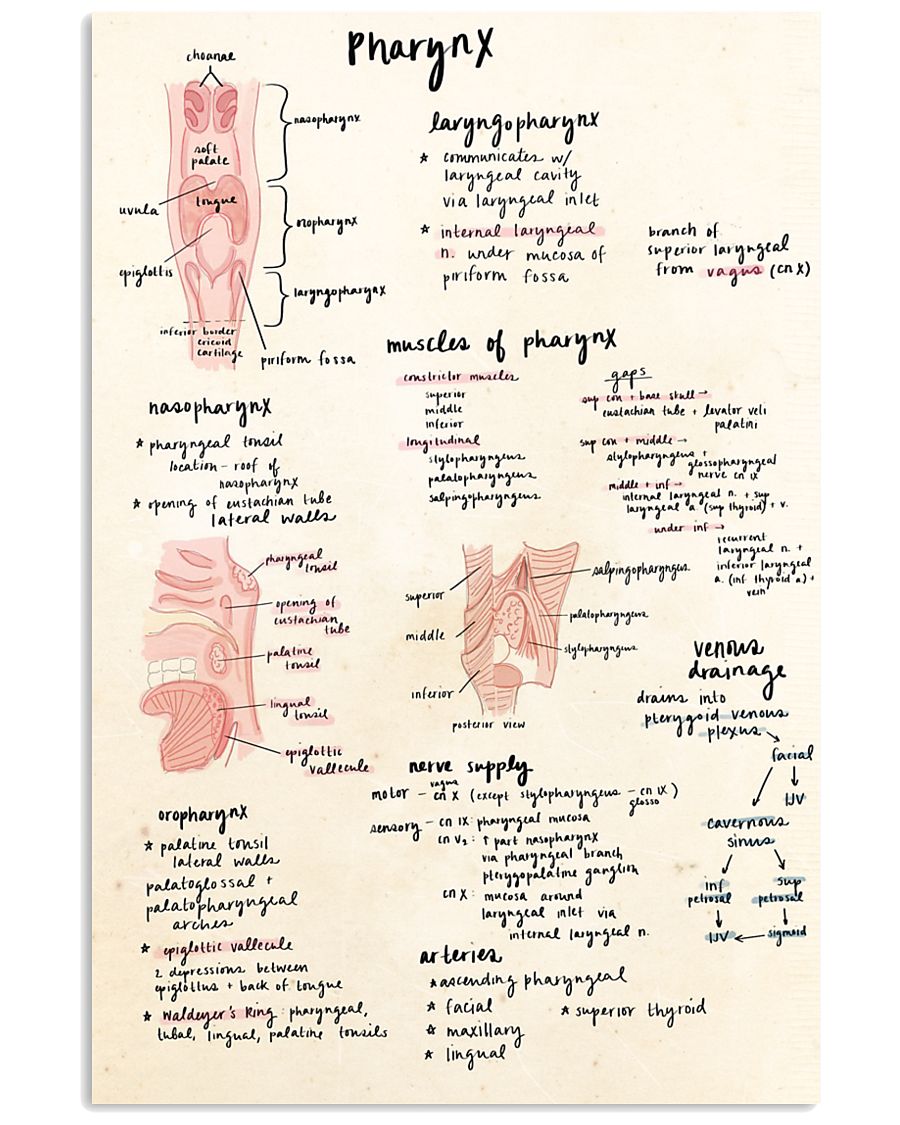 Pharynx
choanae
nasopharynx
soft
palate
uvula
tongue
oropharynx
epiglottis
laryngopharynx
inferior border
cricoid
cartilage
piriform fossa
laryngopharynx
* communicates w/
laryngeal cavity
via laryngeal inlet
* internal laryngeal
n. under mucosa of
piriform fossa
branch of
superior laryngeal
from vagus (cn X)
muscles of pharynx
constrictor muscles
superior
middle
inferior
longitudinal
stylopharyngeus
palatopharyngeus
salpingopharyngeus
gaps
sup con + base skull →
eustachian tube + levator veli
palatini
sup con + middle →
stylopharyngeus +
glossopharyngeal
nerve cn IX
middle + inf →
internal laryngeal n. + sup
laryngeal a. (sup thyroid) + v.
under inf →
recurrent
laryngeal n. +
inferior laryngeal
a. (inf thyroid a) +
vein
nasopharynx
* pharyngeal tonsil
location - roof of
nasopharynx
* opening of eustachian tube
lateral walls
pharyngeal
tonsil
opening of
eustachian
tube
palatine
tonsil
lingual
tonsil
epiglottic
vallecule
superior
middle
inferior
salpingopharyngeus
palatopharyngeus
stylopharyngeus
posterior view
venous
drainage
drains into
pterygoid venous
plexus
facial
IJV
cavernous
sinus
inf
petrosal
sup
petrosal
IJV
sigmoid
nerve supply
vagus
motor - cn X (except stylopharyngeus - cn IX)
glosso
sensory - cn IX: pharyngeal mucosa
cn V2: ↑ part nasopharynx
via pharyngeal branch
pterygopalatine ganglion
cn X: mucosa around
laryngeal inlet via
internal laryngeal n.
oropharynx
* palatine tonsil
lateral walls
palatoglossal +
palatopharyngeal
arches
* epiglottic vallecule
2 depressions between
epiglottus + back of tongue
* Waldeyer's Ring: pharyngeal,
tubal, lingual, palatine tonsils
arteries
* ascending pharyngeal
* facial
* maxillary
* lingual
* superior thyroid